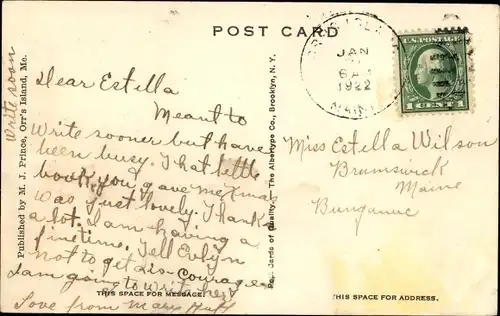 POST CARD
JAN
6 A
1922
MAINE
U.S. POSTAGE
1 CENT 1
Write soon
Published by M. J. Prince, Orr's Island, Me.
Dear Estella
Meant to
write sooner but have
been busy. That little
book you gave me Xmas
was just lovely. Thanks
a lot. I am having a
fine time. Tell Evlyn
not to get dis-courage
I am going to write her
Love from Mary
THIS SPACE FOR MESSAGE.
Post Cards of Quality.—The Albertype Co., Brooklyn, N.Y.
Miss Estella Wilson
Brunswick
Maine
Bunganuc
THIS SPACE FOR ADDRESS.